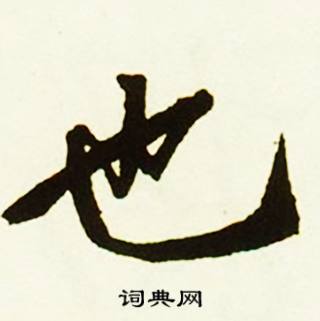 也
词典网